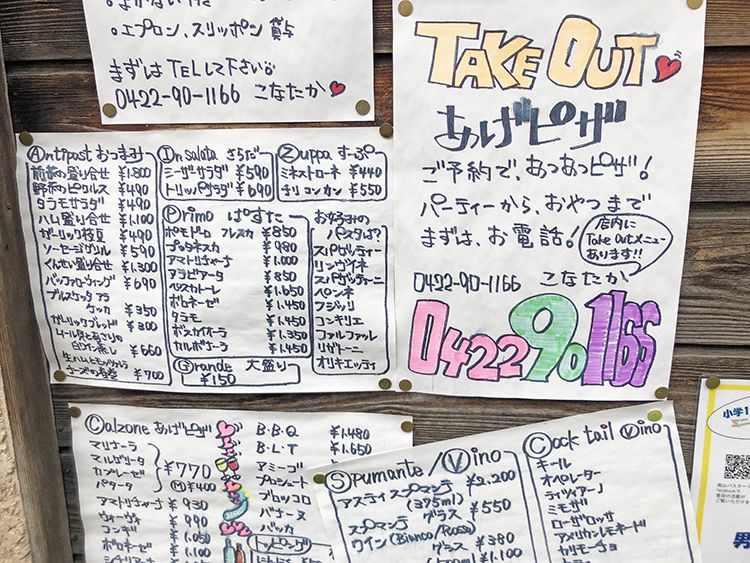 ・エプロン、スリッポン 貸与
まずはTELして下さい
0422-90-1166 こなたか
TAKE OUT
あげピザ
ご予約で、あつあつピザ!
パーティーから、おやつまで
まずは、お電話!
店内に
Take Outメニュー
あります!!
0422-90-1166 こなたか
0422901166
Antipast おつまみ
前菜の盛り合せ ¥1,800
野菜のピクルス ¥490
タラモサラダ ¥490
ハム盛り合せ ¥1,100
ガーリック枝豆 ¥490
ソーセージグリル ¥590
くんせい盛り合せ ¥1,300
バッファローウィング ¥690
ブルスケッタ アラ
ケッカ ¥350
ガーリックブレッド ¥300
ムール貝とあさりの
白ワイン蒸し ¥660
生ハムとモッツァレラ
チーズの春巻 ¥700
In salata さらだ
シーザーサラダ ¥590
トリッパサラダ ¥690
Zuppa すーぷ
ミネストローネ ¥440
チリコンカン ¥550
Primo ぱすた
ポモドーロ フレスカ ¥850
プッタネスカ ¥980
アマトリチャーナ ¥1,000
アラビアータ ¥850
ペスカトーレ ¥1,650
ボロネーゼ ¥1,450
タラモ ¥1,450
ボスカイオーラ ¥1,350
カルボナーラ ¥1,450
お好みの
パスタは?
スパゲッティー
リングイネ
スパゲッティーニ
ペンネ
フジッリ
コンキリエ
ファルファッレ
リガトーニ
オリキエッティ
Grande 大盛り
¥150
Calzone あげピザ
マリナーラ
マルゲリータ
カプレーゼ
パタータ
¥770
(M)¥400
アマトリチャーナ ¥930
ヴォーヴォ ¥990
コンギ ¥1,050
ボロネーゼ ¥1,100
B.B.Q ¥1,480
B.L.T ¥1,650
アミーゴ
プロシュート
ブロッコロ
バナーヌ
バッカ
トッピング
Spumante/Vino
アスティスプマンテ ¥2,200
(375ml)
グラス ¥550
スプマンテ
ワイン(Bianco/Rosso)
グラス ¥380
¥1,100
Cock tail Vino
キール
オペレーター
ティツィアーノ
ミモザ
ローザロッサ
アメリカンレモネード
カリモーチョ
小学1